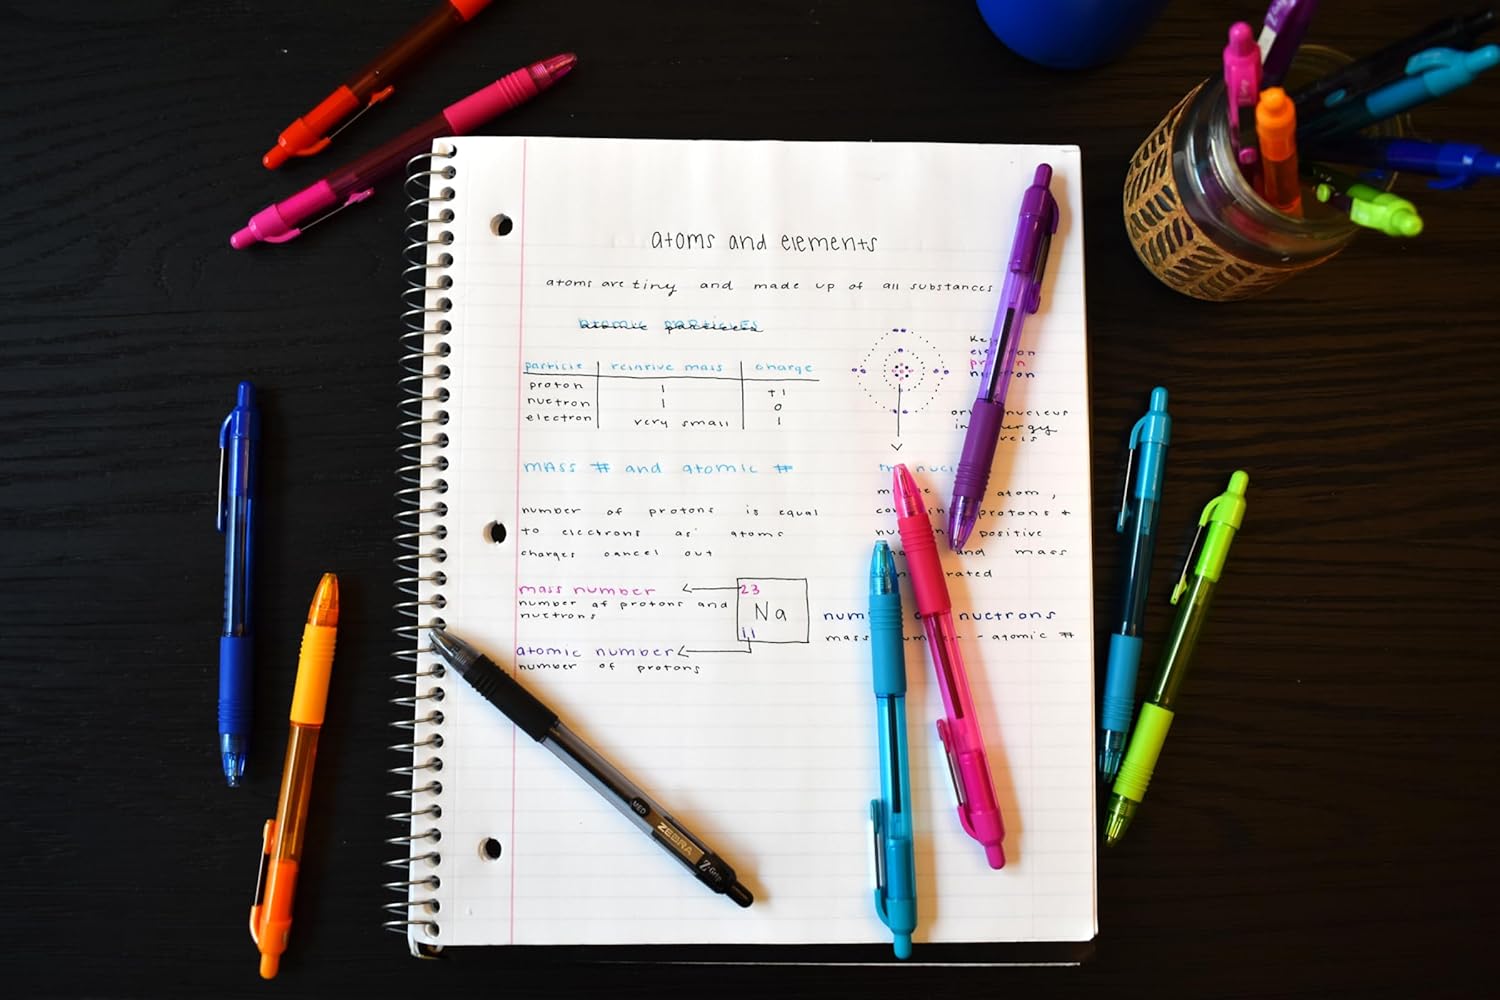 atoms and elements
atoms are tiny and made up of all substances
atomic particles
particle relative mass charge
proton 1 +1
nuetron 1 0
electron very small 1
Key
nucleus
mass # and atomic #
number of protons is equal
to electrons as atoms
charges cancel out
atom,
protons +
positive
and mass
mass number
number of protons and
nuetrons
23
Na
11
atomic number
number of protons
nuetrons
mass - atomic #
MED ZEBRA Z-Grip